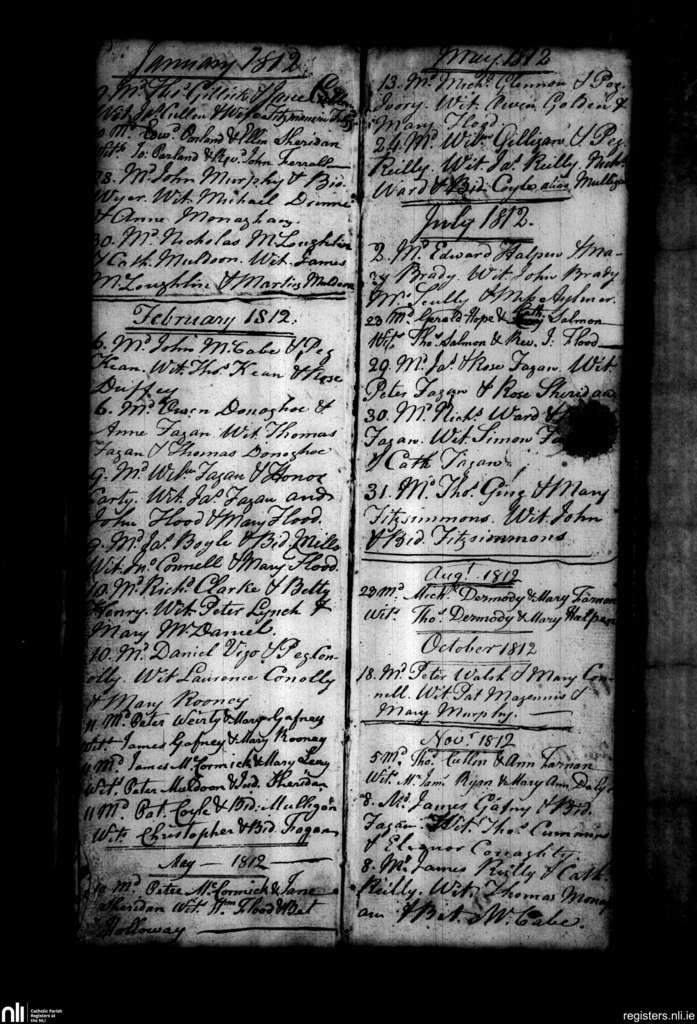 January 1812
9. Md. Thos. Gillick & Jane
Wit. Jas. Cullen &
9 Md. Edwd. Parland & Ellen Sheridan
Wits. Jo: Parland & Revd. John Ferrall
28. Md. John Murphy & Bid.
Wyer. Wit. Michael Dunne
& Anne Monaghan.
30. Md. Nicholas McLoughlin
& Cath. Muldoon. Wit. James
McLoughlin & Muldoon
February 1812.
6. Md. John McCabe & Peg
Kean. Wit. Thos. Kean & Rose
Duffey
6. Md. Owen Donoghoe &
Anne Fagan Wit. Thomas
Fagan & Thomas Donoghoe
9. Md. Willm. Fagan & Honor
Carty. Wit. Jas. Fagan and
John Flood & Mary Flood.
9. Md. Jas. Boyle & Bid. Mills
Wit. McConnell & Mary Flood.
10. Md. Richd. Clarke & Betty
Henry. Wit. Peter Lynch &
Mary McDaniel.
10. Md. Daniel Vigo & Peg Con-
olly. Wit Laurence Conolly
& Mary Rooney
11 Md. Peter & Mary Gafney
Wits. James Gafney & Mary Rooney
11 Md. James McCormick & Mary Leavy
Wits. Peter Muldoon & Jud. Sheridan
11 Md. Pat. Coyle & Bid: Mulligan
Wits. Christopher & Bid. Fagan
May — 1812 —
10 Md. Peter McCormick & Jane
Sheridan Wit. Wm. Flood & Bet
Holloway —
May. 1812
13. Md. Michl. Glennon & Peg.
Ivory. Wit. Owen &
Mary Flood.
24. Md. Willm. Gilligan & Peg.
Reilly. Wit Jas. Reilly.
Ward & Bid. Coyle alias Mulligan
July 1812.
2. Md. Edward Halpen & Ma-
ry Brady. Wit. John Brady
Mrs. Scully & Aylmer.
23 Md. Gerald Hope & Salmon
Wits. Thos. Salmon & Rev. J: Flood —
29. Md. Jas. & Rose Fagan. Wit.
Peter Fagan & Rose Sheridan
30. Md. Richd. Ward &
Fagan. Wit. Simon
& Cath Fagan.
31. Md. Thos. Ging & Mary
Fitzsimmons. Wit. John
& Bid. Fitzsimmons
Augt. 1812
23 Md. Michl. Dermody & Mary Farnan
Wits. Thos. Dermody & Mary Halpen
October 1812
18. Md. Peter Walsh & Mary Con-
nell. Wit. Pat Magennis &
Mary Murphy. —
Novr. 1812
5 Md. Thos. Cullen & Ann Farnan
Wits. Jams. Ryan & Mary Ann Daly
8. Md. James Gafny & Bid.
Fagan. Wit. Thos. Cummins
& Eleanor Conaghty.
8. Md. James Reilly & Cath.
Reilly. Wit. Thomas Monag
an & Bit. McCabe.
nli
Catholic Parish
Registers at
the NLI
registers.nli.ie